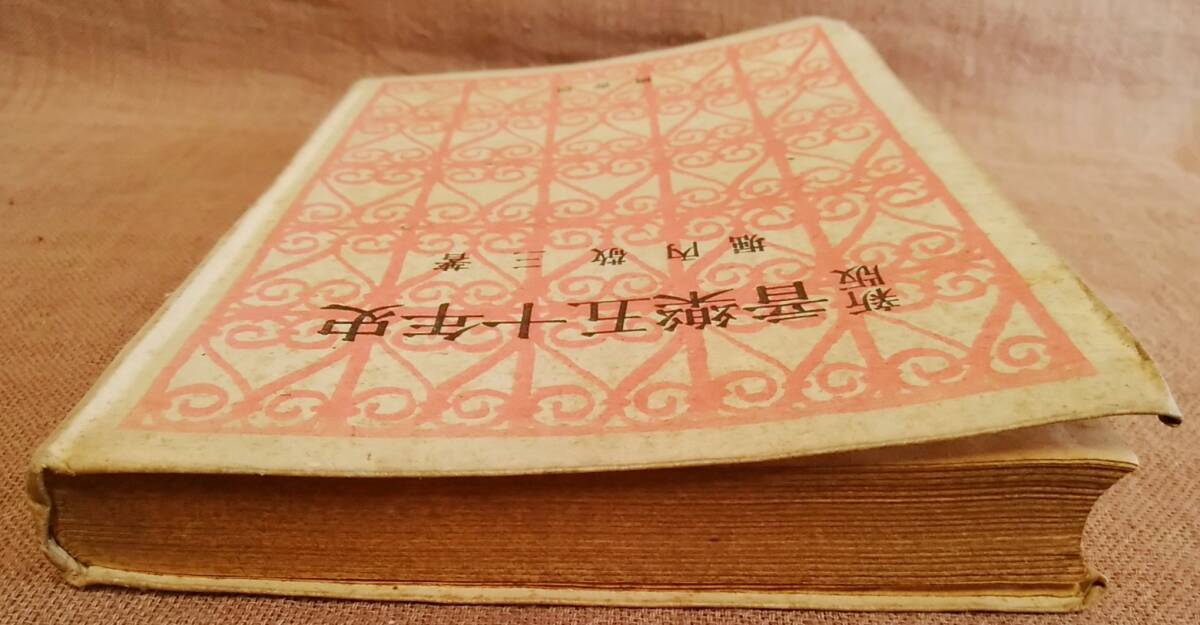 新版
音樂五十年史
堀内敬三著